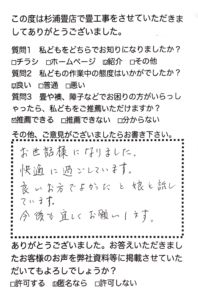 この度は杉浦畳店で畳工事をさせていただきま
してありがとうございました。
質問1 私どもをどちらでお知りになりましたか？
□チラシ □ホームページ ☑紹介 □その他
質問2 私どもの作業中の態度はいかがでしたか？
☑良い □普通 □悪い
質問3 畳や襖、障子などでお困りの方がいらっし
ゃったら、私どもをご推薦いただけますか？
☑推薦できる □推薦できない □分からない
その他、ご意見がございましたらお書き下さい。
お世話様になりました。
快適に過ごしています。
良いお方でよかったと娘と話し
ています。
今後も宜しくお願いします。
ありがとうございました。お答えいただきまし
たお客様のお声を弊社資料等に掲載させていた
だいてもよろしでしょうか？
□許可する ☑匿名なら □許可しない